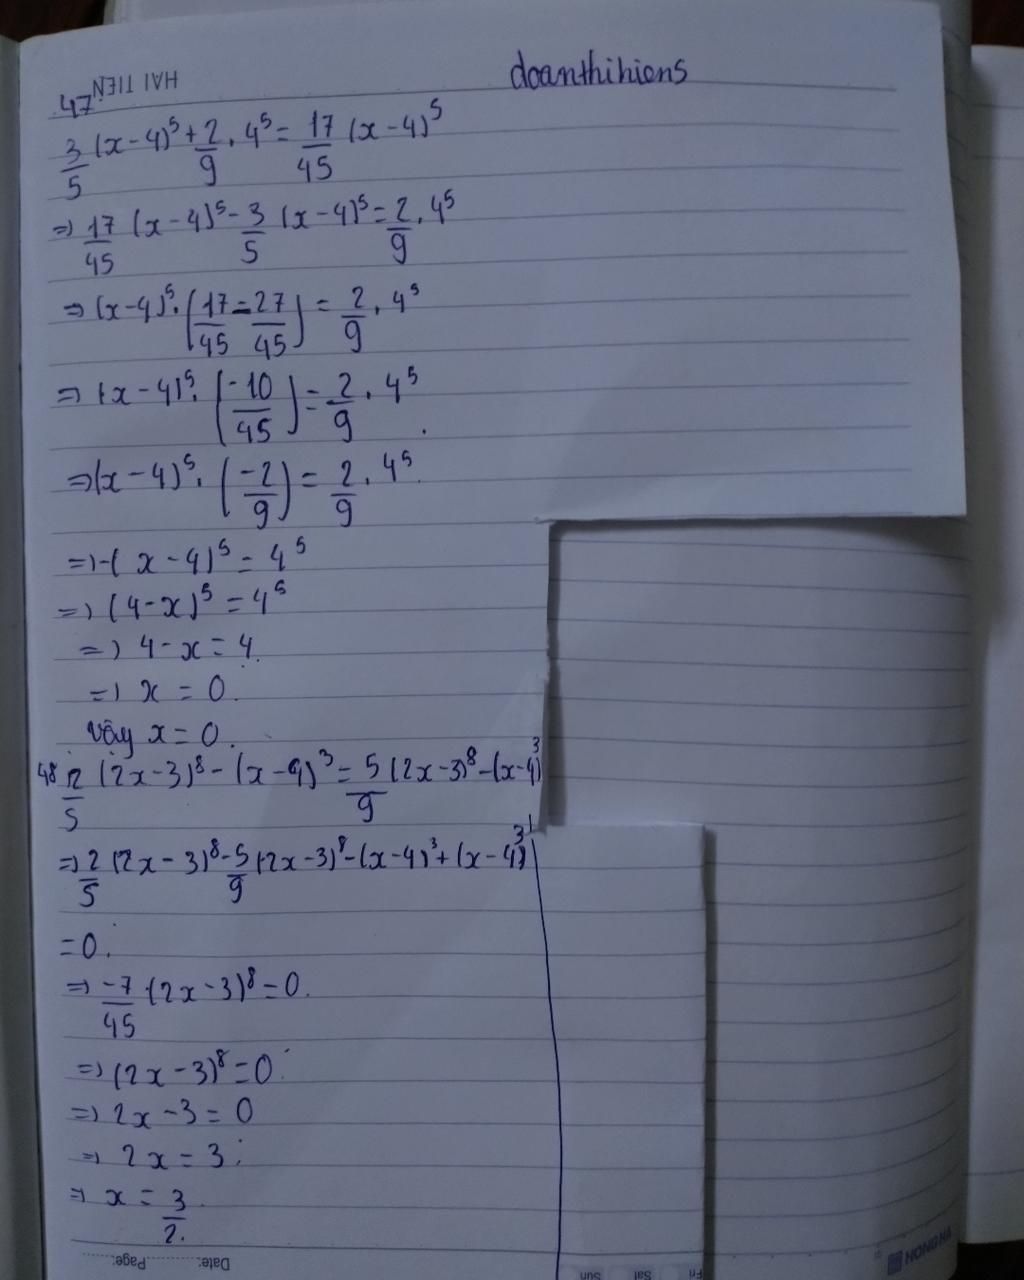 HẢI TIẾN
doanthihiens
47.
3/5 (x-4)⁵ + 2/9 . 4⁵ = 17/45 (x-4)⁵
=> 17/45 (x-4)⁵ - 3/5 (x-4)⁵ = 2/9 . 4⁵
=> (x-4)⁵ . (17/45 - 27/45) = 2/9 . 4⁵
=> (x-4)⁵ . (-10/45) = 2/9 . 4⁵
=> (x-4)⁵ . (-2/9) = 2/9 . 4⁵
=> -(x-4)⁵ = 4⁵
=> (4-x)⁵ = 4⁵
=> 4-x = 4
=> x = 0.
Vậy x = 0.
48 2/5 (2x-3)⁸ - (x-4)³ = 5/9 (2x-3)⁸ - (x-4)³
=> 2/5 (2x-3)⁸ - 5/9 (2x-3)⁸ - (x-4)³ + (x-4)³
= 0.
=> -7/45 (2x-3)⁸ = 0.
=> (2x-3)⁸ = 0
=> 2x-3 = 0
=> 2x = 3
=> x = 3/2.
Date: Page:
Fri Sat Sun
HONG HA